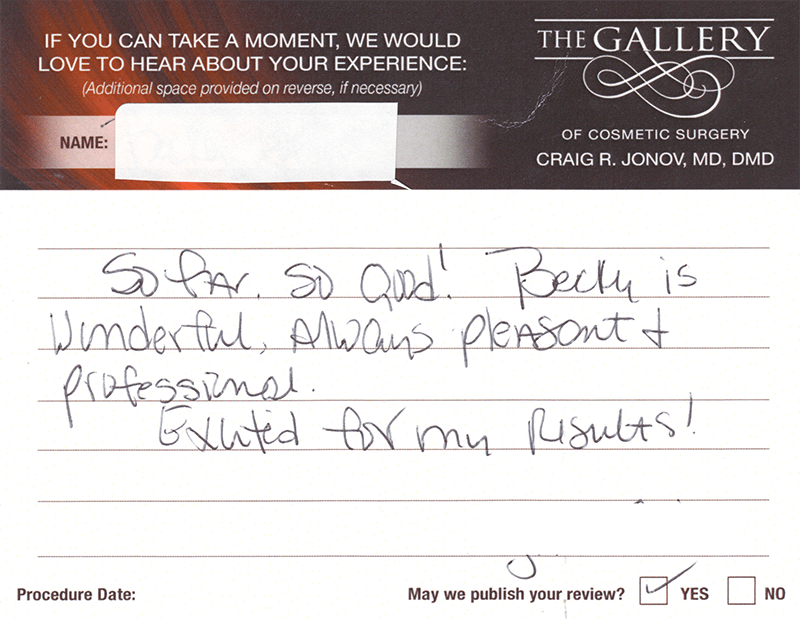 IF YOU CAN TAKE A MOMENT, WE WOULD
LOVE TO HEAR ABOUT YOUR EXPERIENCE:
(Additional space provided on reverse, if necessary)
NAME:
THE GALLERY
OF COSMETIC SURGERY
CRAIG R. JONOV, MD, DMD
So far. So Good! Becky is
Wonderful, Always pleasant +
professional.
Excited for my Results!
Procedure Date:
May we publish your review? YES NO